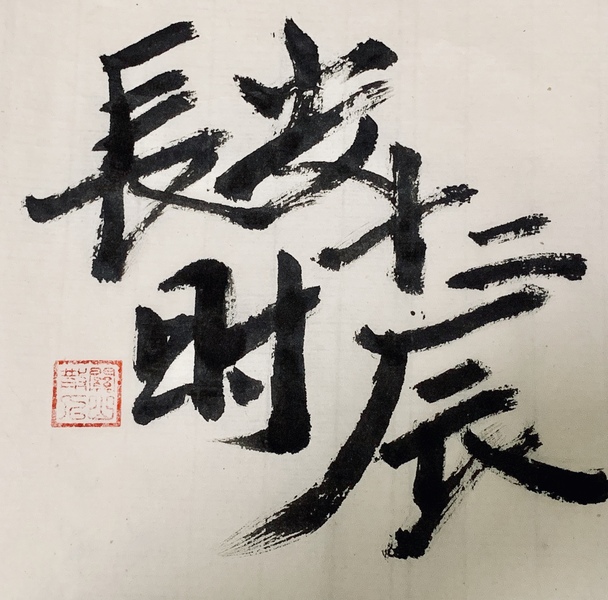 長安十二
时辰